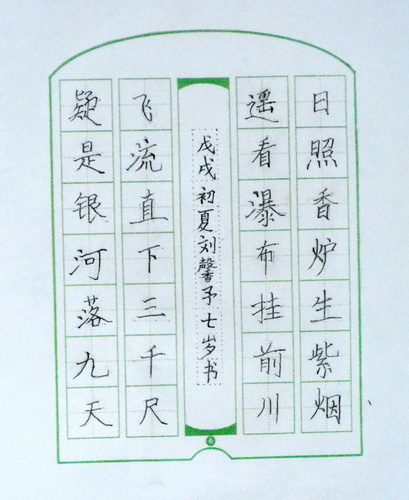 日照香炉生紫烟
遥看瀑布挂前川
戊戌初夏刘馨予七岁书
飞流直下三千尺
疑是银河落九天